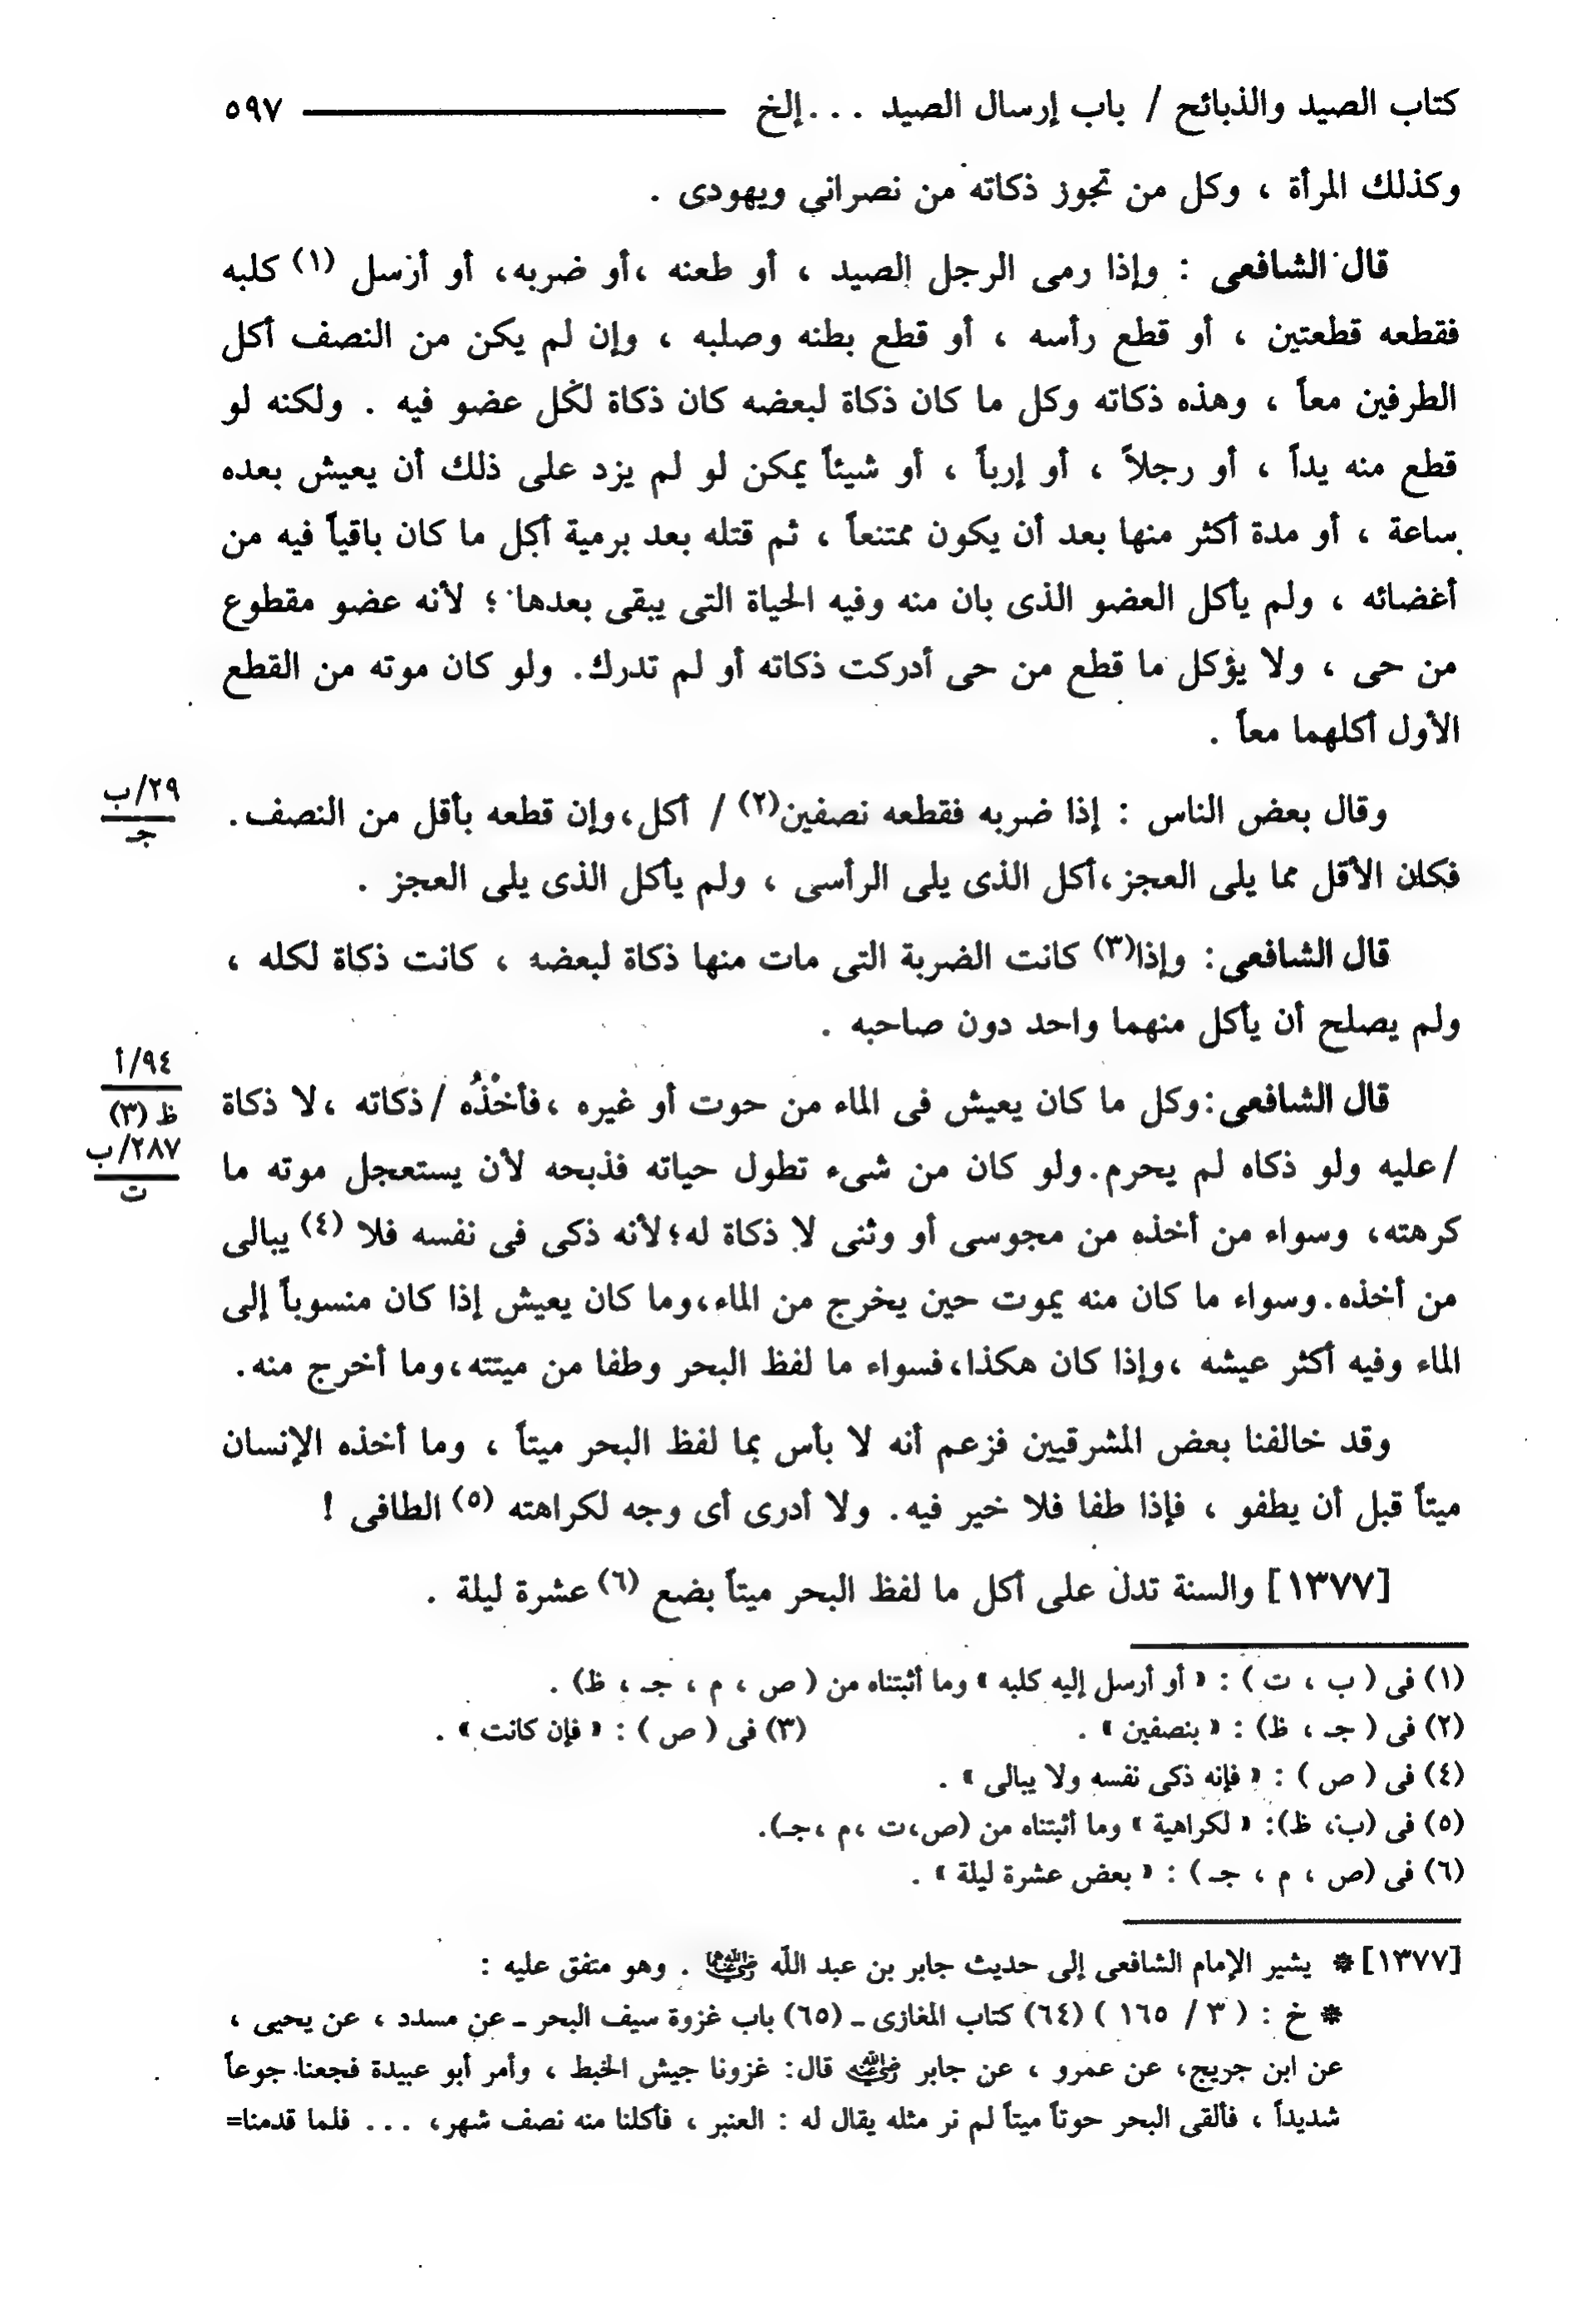 كتاب الصيد والذبائح / باب إرسال الصيد ... إلخ ٥٩٧
وكذلك المرأة ، وكل من تجوز ذكاته من نصرانى ويهودى .
قال الشافعى : وإذا رمى الرجل الصيد ، أو طعنه ،أو ضربه، أو أرسل (١) كلبه
فقطعه قطعتين ، أو قطع رأسه ، أو قطع بطنه وصلبه ، وإن لم يكن من النصف أكل
الطرفين معاً ، وهذه ذكاته وكل ما كان ذكاة لبعضه كان ذكاة لكل عضو فيه . ولكنه لو
قطع منه يداً ، أو رجلاً ، أو إرباً ، أو شيئاً يمكن لو لم يزد على ذلك أن يعيش بعده
ساعة ، أو مدة أكثر منها بعد أن يكون ممتنعاً ، ثم قتله بعد برمية أكل ما كان باقياً فيه من
أعضائه ، ولم يأكل العضو الذى بان منه وفيه الحياة التى يبقى بعدها ؛ لأنه عضو مقطوع
من حى ، ولا يؤكل ما قطع من حى أدركت ذكاته أو لم تدرك. ولو كان موته من القطع
الأول أكلهما معاً .
وقال بعض الناس : إذا ضربه فقطعه نصفين(٢) / أكل،وإن قطعه بأقل من النصف.
٢٩/ب
جـ
فكان الأقل مما يلى العجز،أكل الذى يلى الرأسى ، ولم يأكل الذى يلى العجز .
قال الشافعى: وإذا(٣) كانت الضربة التى مات منها ذكاة لبعضه ، كانت ذكاة لكله ،
ولم يصلح أن يأكل منهما واحد دون صاحبه .
قال الشافعى:وكل ما كان يعيش فى الماء من حوت أو غيره ،فأخْذُه /ذكاته ،لا ذكاة
٩٤/أ
ظ (٣)
/عليه ولو ذكاه لم يحرم.ولو كان من شىء تطول حياته فذبحه لأن يستعجل موته ما
٢٨٧/ب
ت
كرهته، وسواء من أخذه من مجوسى أو وثنى لا ذكاة له؛لأنه ذكى فى نفسه فلا (٤) يبالى
من أخذه.وسواء ما كان منه يموت حين يخرج من الماء،وما كان يعيش إذا كان منسوباً إلى
الماء وفيه أكثر عيشه ،وإذا كان هكذا،فسواء ما لفظ البحر وطفا من ميتته،وما أخرج منه.
وقد خالفنا بعض المشرقيين فزعم أنه لا بأس بما لفظ البحر ميتاً ، وما أخذه الإنسان
ميتاً قبل أن يطفو ، فإذا طفا فلا خير فيه. ولا أدرى أى وجه لكراهته (٥) الطافى !
[١٣٧٧] والسنة تدل على أكل ما لفظ البحر ميتاً بضع (٦) عشرة ليلة .
(١) فى ( ب ، ت ) : « أو أرسل إليه كلبه » وما أثبتناه من ( ص ، م ، جـ ، ظ) .
(٢) فى ( جـ ، ظ) : « بنصفين » . (٣) فى ( ص ) : « فإن كانت » .
(٤) فى ( ص ) : « فإنه ذكى نفسه ولا يبالى » .
(٥) فى (ب، ظ): « لكراهية » وما أثبتناه من (ص،ت ،م ،جـ).
(٦) فى (ص ، م ، جـ ) : « بعض عشرة ليلة » .
[١٣٧٧] * يشير الإمام الشافعى إلى حديث جابر بن عبد الله رضي الله عنهما . وهو متفق عليه :
* خ : ( ٣ / ١٦٥ ) (٦٤) كتاب المغازى ـ (٦٥) باب غزوة سيف البحر ـ عن مسدد ، عن يحيى ،
عن ابن جريج، عن عمرو ، عن جابر رضي الله عنه قال: غزونا جيش الخبط ، وأمر أبو عبيدة فجعنا جوعاً
شديداً ، فألقى البحر حوتاً ميتاً لم نر مثله يقال له : العنبر ، فأكلنا منه نصف شهر، ... فلما قدمنا=